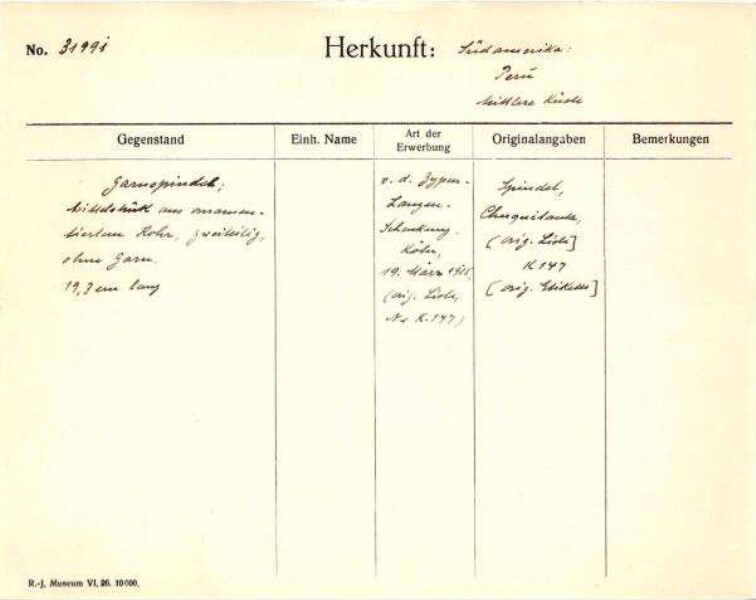 No. 31991
Herkunft: Südamerika:
Perú
Mittlere Küste
Gegenstand
Einh. Name
Art der
Erwerbung
Originalangaben
Bemerkungen
Garnspindel;
Mittelstück aus ornamen-
tiertem Rohr, zweiteilig,
ohne Garn.
19,7 cm lang
v. d. Zypen-
Langen-
Schenkung,
Köln,
19. März
(orig. Liste,
No K. 147)
Spindel,
Chuquitanta,
(orig. Liste]
K 147
[orig. Etikette]
R.-J. Museum VI. 26. 10000.